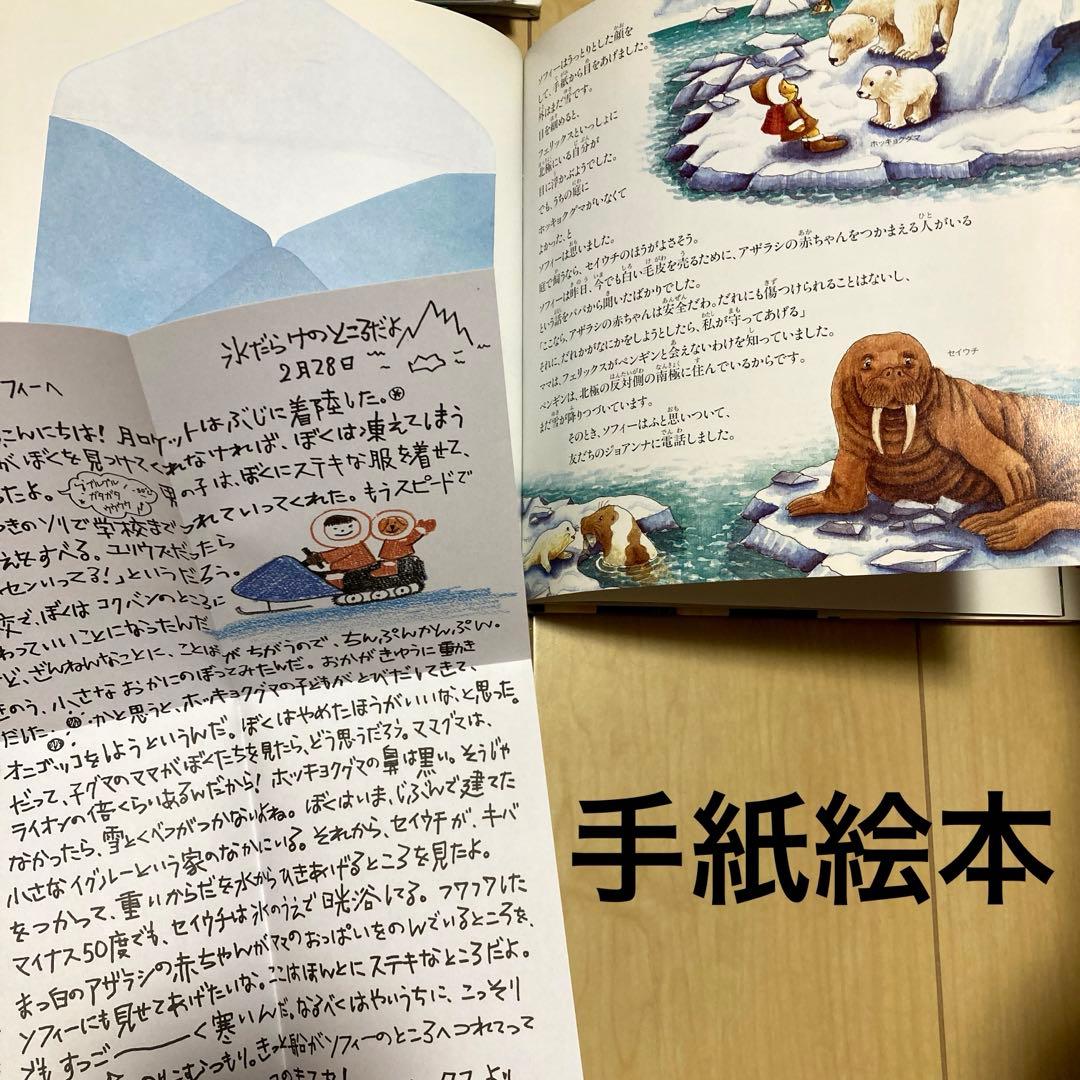 ソフィーはうっとりとした顔を
して、手紙から目をあげました。
外はまだ雪です。
目を細めると、
フェリックスといっしょに
北極にいる自分が
目に浮かぶようでした。
でも、うちの庭に
ホッキョクグマがいなくて
よかった、と
ソフィーは思いました。
庭で飼うなら、セイウチのほうがよさそう。
ソフィーは昨日、今でも白い毛皮を売るために、アザラシの赤ちゃんをつかまえる人がいる
という話をパパから聞いたばかりでした。
「ここなら、アザラシの赤ちゃんは安全だわ。だれにも傷つけられることはないし、
それに、だれかがなにかをしようとしたら、私が守ってあげる」
ママは、フェリックスがペンギンと会えないわけを知っていました。
ペンギンは、北極の反対側の南極に住んでいるからです。
まだ雪が降りつづいています。
そのとき、ソフィーはふと思いついて、
友だちのジョアンナに電話しました。
ホッキョクグマ
セイウチ
氷だらけのところだよ
2月28日
フィーへ
こんにちは! 月ロケットはぶじに着陸した。
が、ぼくを見つけてくれなければ、ぼくは凍えてしまう
ったよ。
ブルブル
ガタガタ
ウウウウ
の子は、ぼくにステキな服を着せて、
つきのソリで学校まで れていってくれた。もうスピードで
をすべる。ユリウスだったら
センいってる!」というだろう。
で、ぼくは コクバンのところに
わっていいことになったんだ
ど、ざんねんなことに、ことばが ちがうので、ちんぷんかんぷん。
きのう、小さな おかにのぼってみたんだ。おかがきゅうに動き
だした。かと思うと、ホッキョクグマの子どもが とびだしてきて、
オニゴッコをしようというんだ。ぼくはやめたほうがいいな、と思った。
だって、子グマのママがぼくたちを見たら、どう思うだろう。ママグマは、
ライオンの倍くらいあるんだから! ホッキョクグマの鼻は黒い。そうじゃ
なかったら、雪とくべつがつかないよね。ぼくはいま、じぶんで建てた
小さなイグルーという家のなかにいる。それから、セイウチが、キバ
をつかって、重いからだを水からひきあげるところを見たよ。
マイナス50度でも、セイウチは氷のうえで日光浴してる。フワフワした
まっ白のアザラシの赤ちゃんがママのおっぱいをのんでいるところを、
ソフィーにも見せてあげたいな。ここはほんとにステキなところだよ。
でも、すっごーーーく寒いんだ。なるべくはやいうちに、こっそり
こむつもり。きっと船がソフィーのところへつれてって
手紙絵本